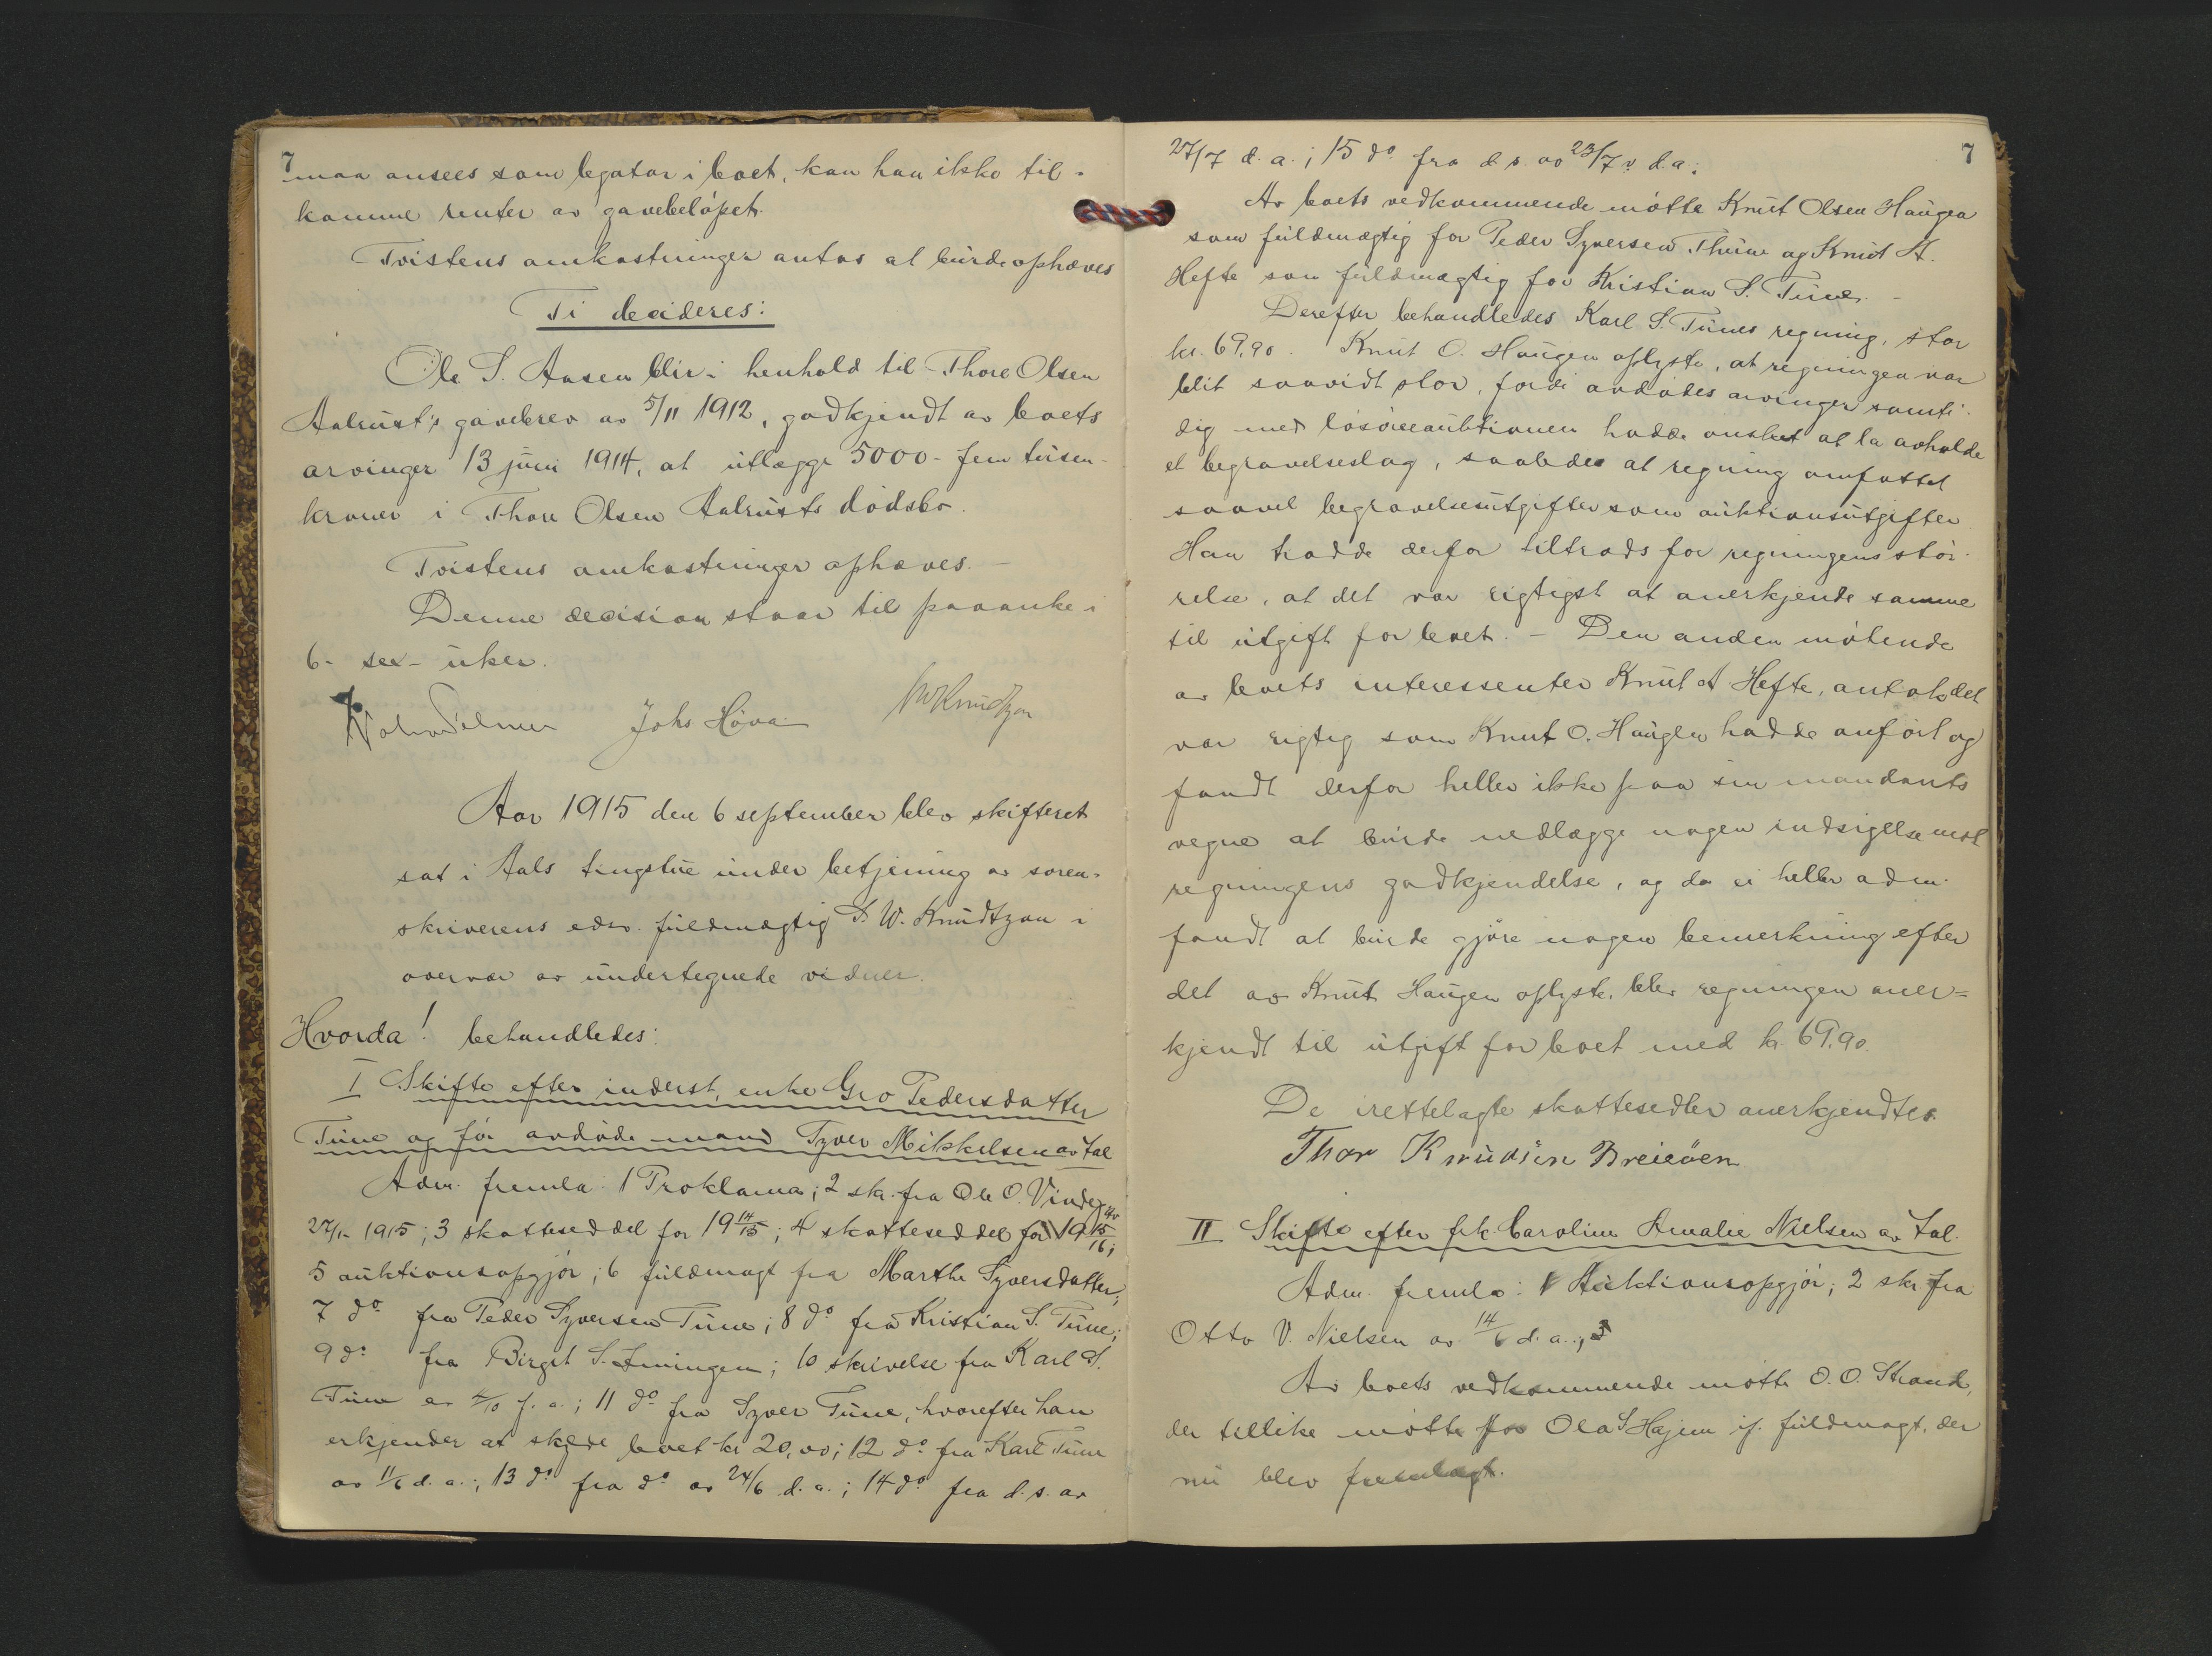 7
maa ansees som legatar i boet, kan han ikke til-
komme renter av gavebeløpet.
Tvistens omkostninger antas at burde ophæves
Ti decideres:
Ole S. Aasen blir i henhold til Thore Olsen
Aalrust's gavebrev av 5/11 1912, godkjendt av boets
arvinger 13 juni 1914, at utlægge 5000 - fem tusen -
kroner i Thore Olsen Aalrusts dødsbo.
Tvistens omkostninger ophæves. -
Denne decision staar til paaanke i
6 - sex - uker.
Johs Høva
Aar 1915 den 6 september blev skifteret
sat i Aals tingstue under betjening av soren-
skriverens edsv. fuldmægtig W. Knudtzon i
overvær av undertegnede vidner.
Hvorda! behandledes:
I Skifte efter inderst, enke Gro Pedersdatter
Tune og før avdøde mand Syver Mikkelsen av Aal
Adm. fremla: 1 Proklama; 2 skr. fra Ole O. Vindeg av
27/1- 1915; 3 skatteseddel for 19 14/15; 4 skatteseddel for 19 15/16;
5 auktionsopgjør; 6 fuldmagt fra Marthe Syversdatter;
7 do fra Peder Syversen Tune; 8 do fra Kristian S. Tune;
9 do fra Birgit S. ; 10 skrivelse fra Karl S.
Tune av 4/10 f. a.; 11 do fra Syver Tune, hvorefter han
erkjender at skylde boet kr 20,00; 12 do fra Karl Tune
av 11/6 d. a.; 13 do fra do av 24/6 d. a.; 14 do fra d. s. av
7
27/7 d. a.; 15 do fra d. s. av 23/7 d. a.;
Av boets vedkommende møtte Knut Olsen Haugen
som fuldmægtig for Peder Syversen Thune og Knut A.
Hefte som fuldmægtig for Kristian S. Tune. -
Derefter behandledes Karl S. Tunes regning, stor
kr. 69,90. Knut O. Haugen oplyste, at regningen var
blit saavidt stor, fordi avdødes arvinger samti-
dig med løsøreauktionen hadde ønsket at la avholde
et begravelseslag, saaledes at regning omfattet
saavel begravelsesutgifter som auktionsutgifter.
Han trodde derfor tiltrods for regningens stør-
relse, at det var rigtigst at anerkjende samme
til utgift for boet. - Den anden møtende
av boets interessenter Knut A Hefte, antok det
var rigtig som Knut O. Haugen hadde anført og
fandt derfor heller ikke paa sin mandants
vegne at burde nedlægge nogen indsigelse mot
regningens godkjendelse, og da ei heller adm.
fandt at burde gjøre nogen bemerkning efter
det av Knut Haugen oplyste, blev regningen aner=
kjendt til utgift for boet med kr. 69,90.
De irettelagte skattesedler anerkjendtes.
Thor Knudsen Breieåen
II Skifte efter frk. Caroline Amalie Nielsen av Aal.
Adm. fremla: 1 Auktionsopgjør; 2 skr. fra
Otto V. Nielsen av 14/6 d. a.;
Av boets vedkommende møtte O. O. Strand,
der tillike møtte for Ola S Hajem if. fuldmagt, der
nu blev fremlagt.